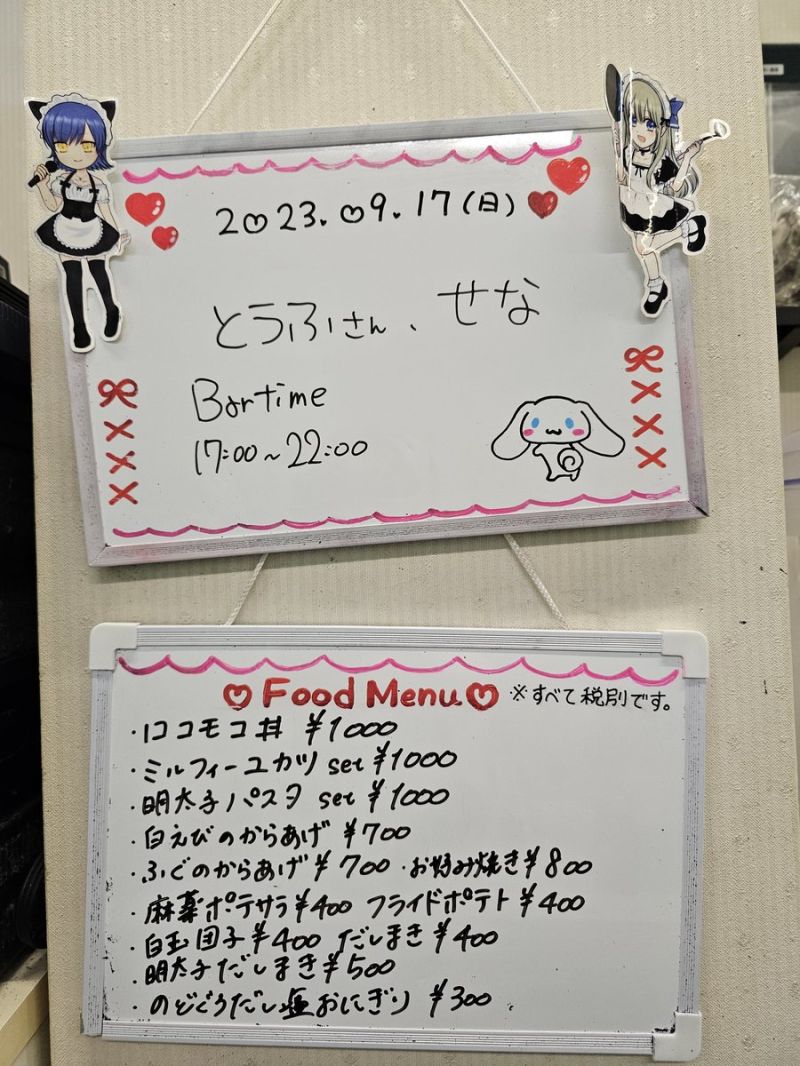 2023.09.17(日)
とうふさん、せな
Bartime
17:00~22:00
Food Menu ※すべて税別です。
・ロコモコ丼 ¥1000
・ミルフィーユカツ set ¥1000
・明太子パスタ set ¥1000
・白えびのからあげ ¥700
・ふぐのからあげ ¥700 ・お好み焼き ¥800
・麻薬ポテサラ ¥400 フライドポテト ¥400
・白玉団子 ¥400 だしまき ¥400
・明太子だしまき ¥500
・のどぐろだし塩おにぎり ¥300